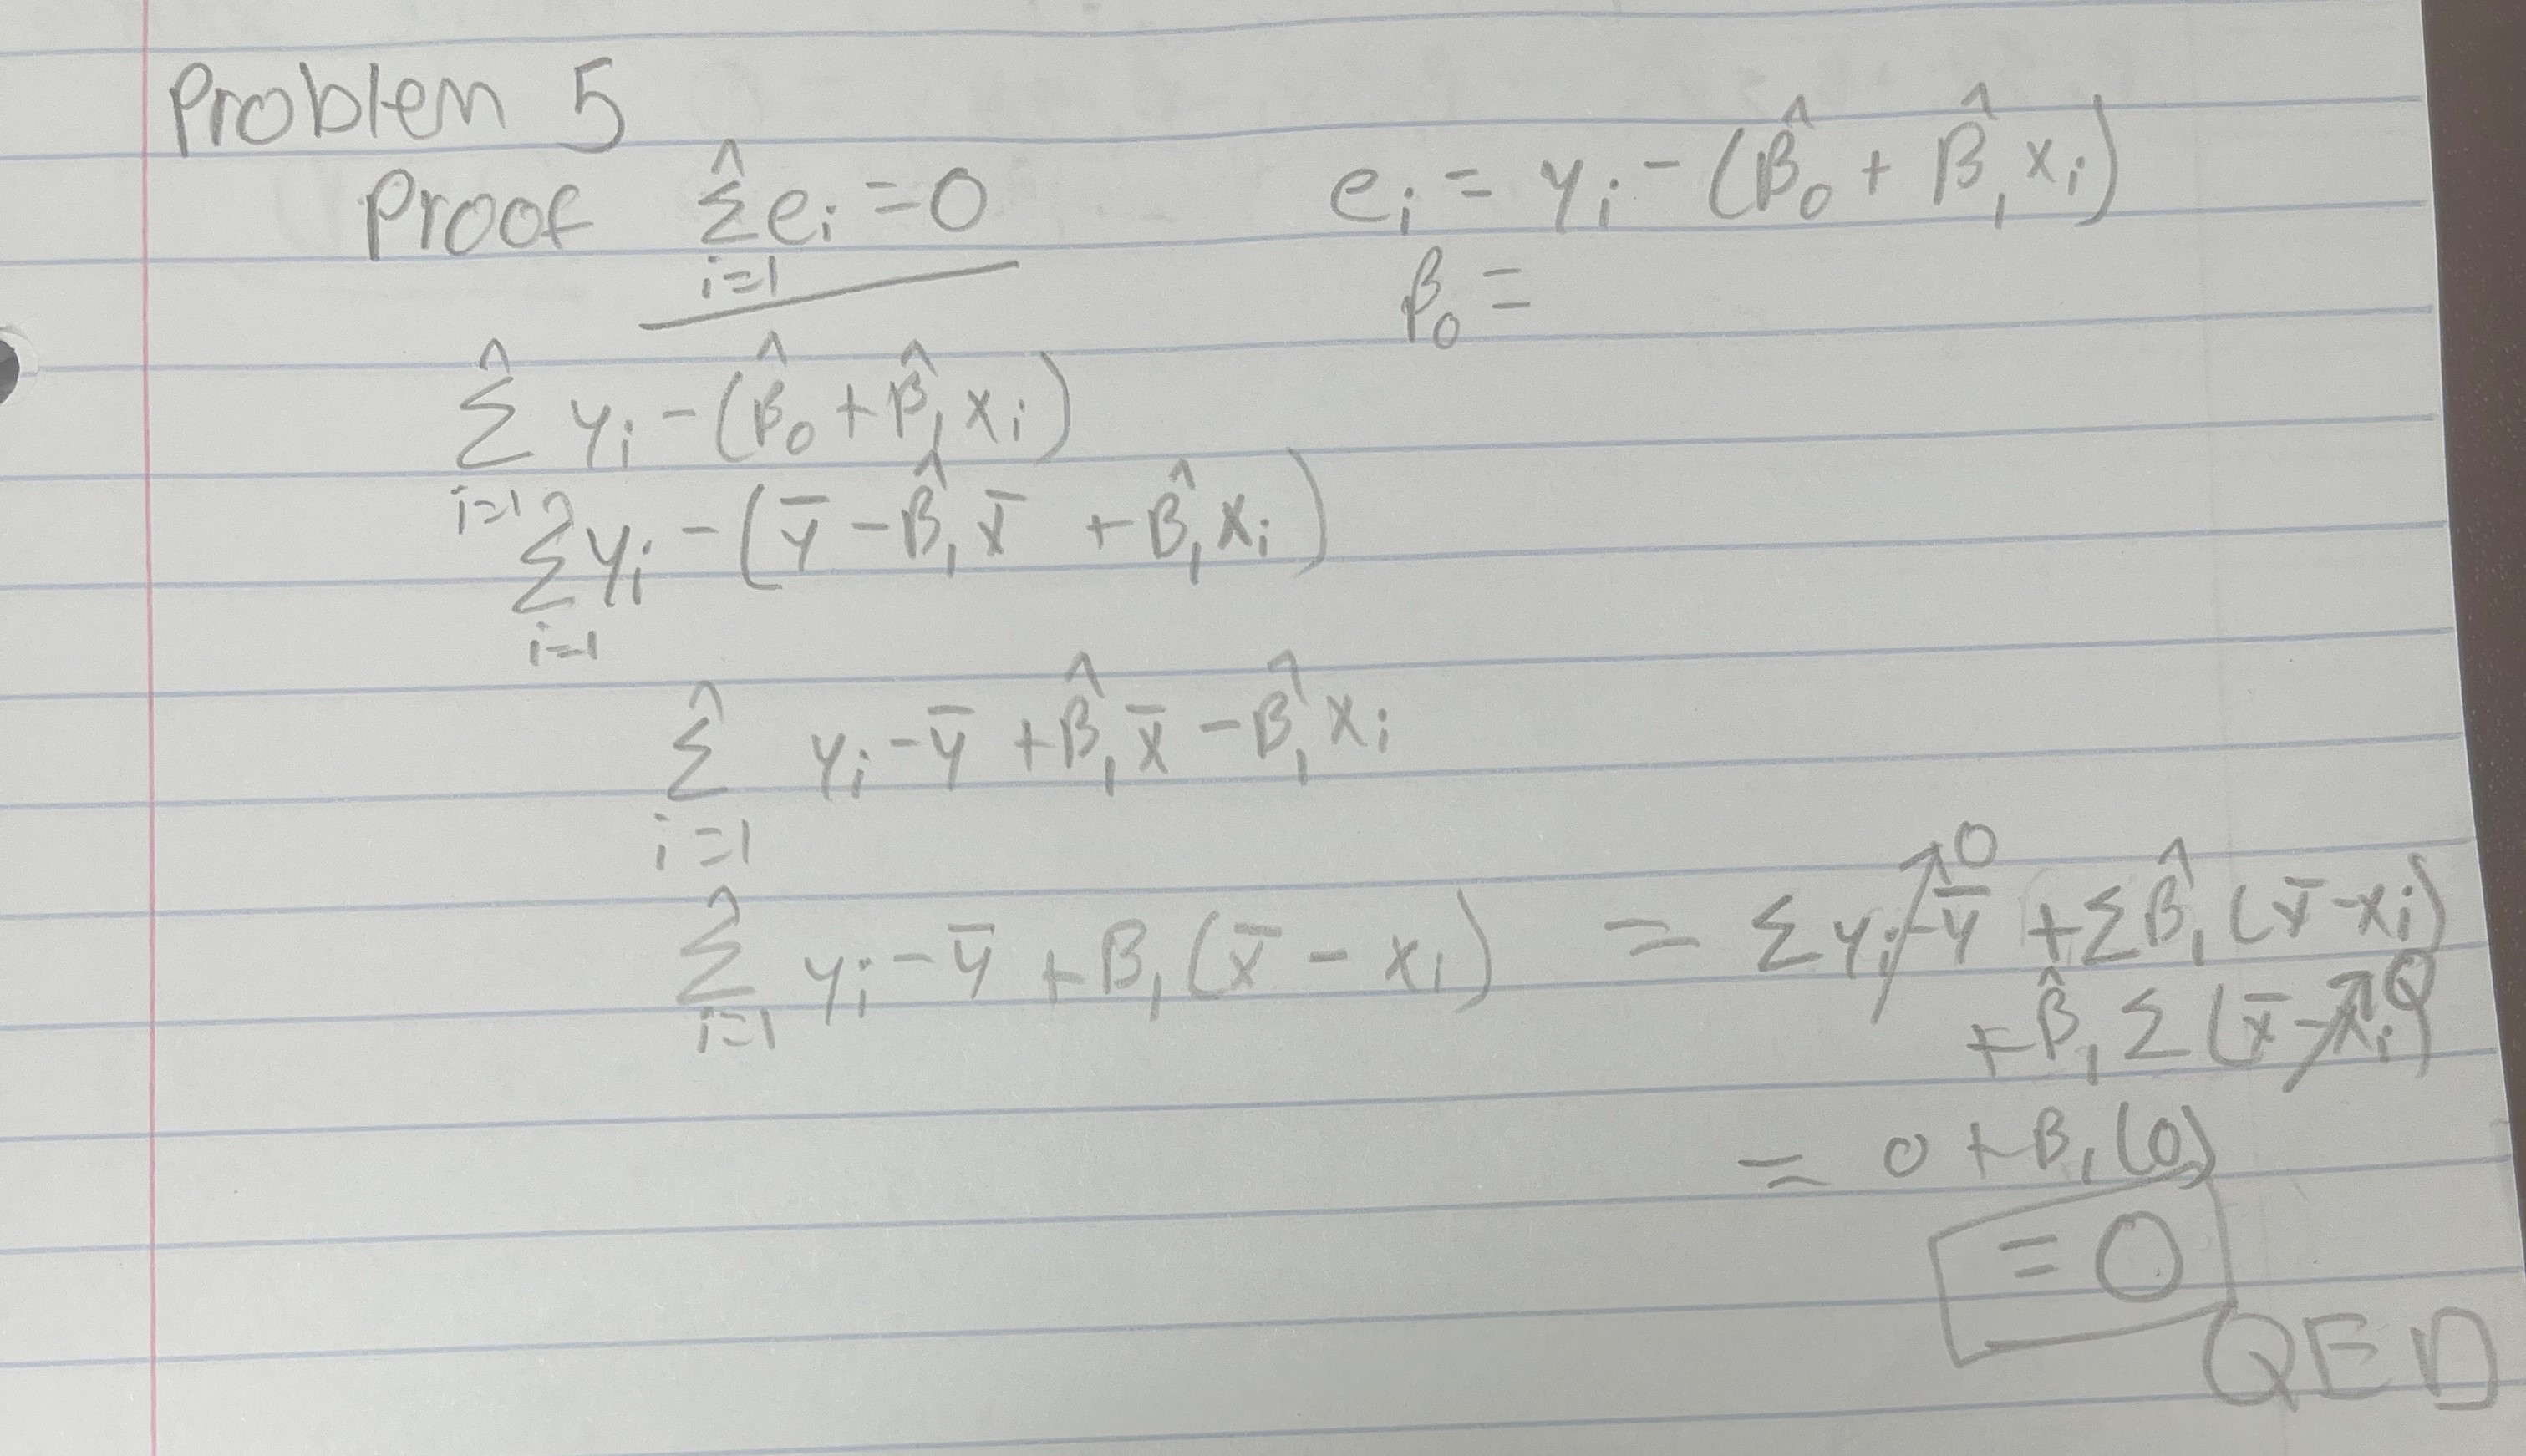 Problem 5
Proof n∑i=1 eᵢ = 0    eᵢ = yᵢ - (β̂₀ + β̂₁xᵢ)
β₀ =
n∑i=1 yᵢ - (β̂₀ + β̂₁xᵢ)
n∑i=1 yᵢ - (ȳ - β̂₁x̄ + β̂₁xᵢ)
n∑i=1 yᵢ - ȳ + β̂₁x̄ - β̂₁xᵢ
n∑i=1 yᵢ - ȳ + β₁(x̄ - xᵢ) = ∑yᵢ - ȳ ↗0 + ∑β̂₁(x̄ - xᵢ)
+ β̂₁∑(x̄ - xᵢ) ↗0
= 0 + β₁(0)
= 0
QED